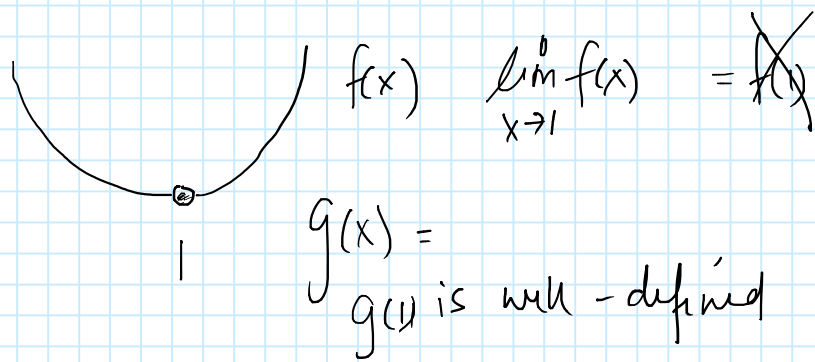 f(x) lim f(x) = f(1)
x→1
1
g(x) =
g(1) is well-defined